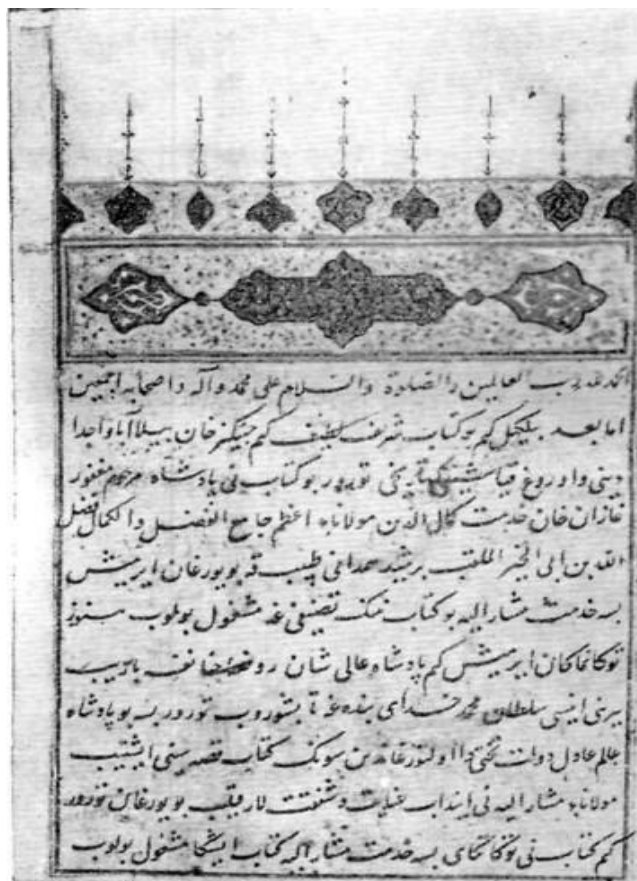 الحمد لله رب العالمين والصلاوة والسلام على محمد وآله واصحابه اجمعين
اما بعد بيلكيل كم بو كتاب شريف لطيف كم جينكيز خان بيلا آبا واجدا
دينى و اوروغ قياسى تورور بو كتاب نى پادشاه مرحوم مغفور
غازان خان خدمت كمال الدين مولانا اعظم جامع الفضل والكمال فضل
الله بن ابى الخير الملقب برشيد همدانى طبيب قه بويورغان ايرميش
بسه خدمت مشار اليه بو كتاب ننك تصنيفى غه مشغول بولوب هنوز
توكانماكان ايرميش كم پادشاه عالى شان
بيرنى اينيسى سلطان محمد خداى بنده غه تبشوروب تورور بسه بو پادشاه
عالم عادل دولت تختى دا اولتورغاندين سونك كتاب قصه سينى ايشيتيب
مولانا مشار اليه نى عنايت و شفقت لار قيليب بويورغان تورور
كم كتاب نى توكاتكاى بسه خدمت مشار اليه كتاب ايشيكا مشغول بولوب